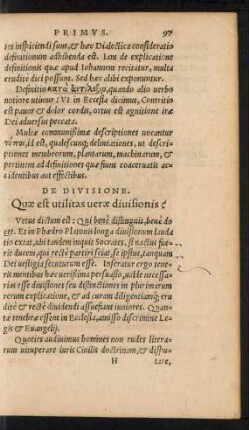 PRIMVS. 97
ita inspiciendi sunt, & hæc Dialectica consideratio
definitionum adhibenda est. Iam de explicatione
definitionis quæ apud Iohannem recitatur, multa
erudite dici possunt. Sed hæc alibi exponuntur.
Definitio κατὰ ἀντίλεξιν, quando alio verbo
notiore utimur, Vt in Ecclesia dicimus, Contritio
est pauor & dolor cordis, ortus est agnitione iræ
Dei aduersus peccata.
Multæ communissimæ descriptiones uocantur
τύποι, id est, quædecunq; delineationes, ut descri
ptiones membrorum, plantarum, machinarum, &
pertinent ad definitiones quæ fiunt coaceruatis ac
cidentibus aut effectibus.
DE DIVISIONE.
Quæ est utilitas veræ diuisionis?
Vetus dictum est: Qui bene distinguit, bene do
cet. Et in Phædro Platonis longa diuisorum lauda
tio extat, ubi tandem inquit Socrates, si nactus fue
rit ducem, qui recte partiri sciat, se ipsius, tanquam
Dei uestigia secuturum esse. Inseratur ergo tene-
ris mentibus hæc uerissima persuasio, ualde necessa
rias esse diuisiones seu distinctiones in plurimarum
rerum explicatione, & ad curam diligentiamq́; eru
dite & recte diuidendi assuefiant iuniores. Quan
tæ tenebræ essent in Ecclesia, amisso discrimine Le
gis & Euangelij.
Quoties audiuimus homines non rudes litera
rum uituperare iuris Ciuilis doctrinam, & dispu-
H